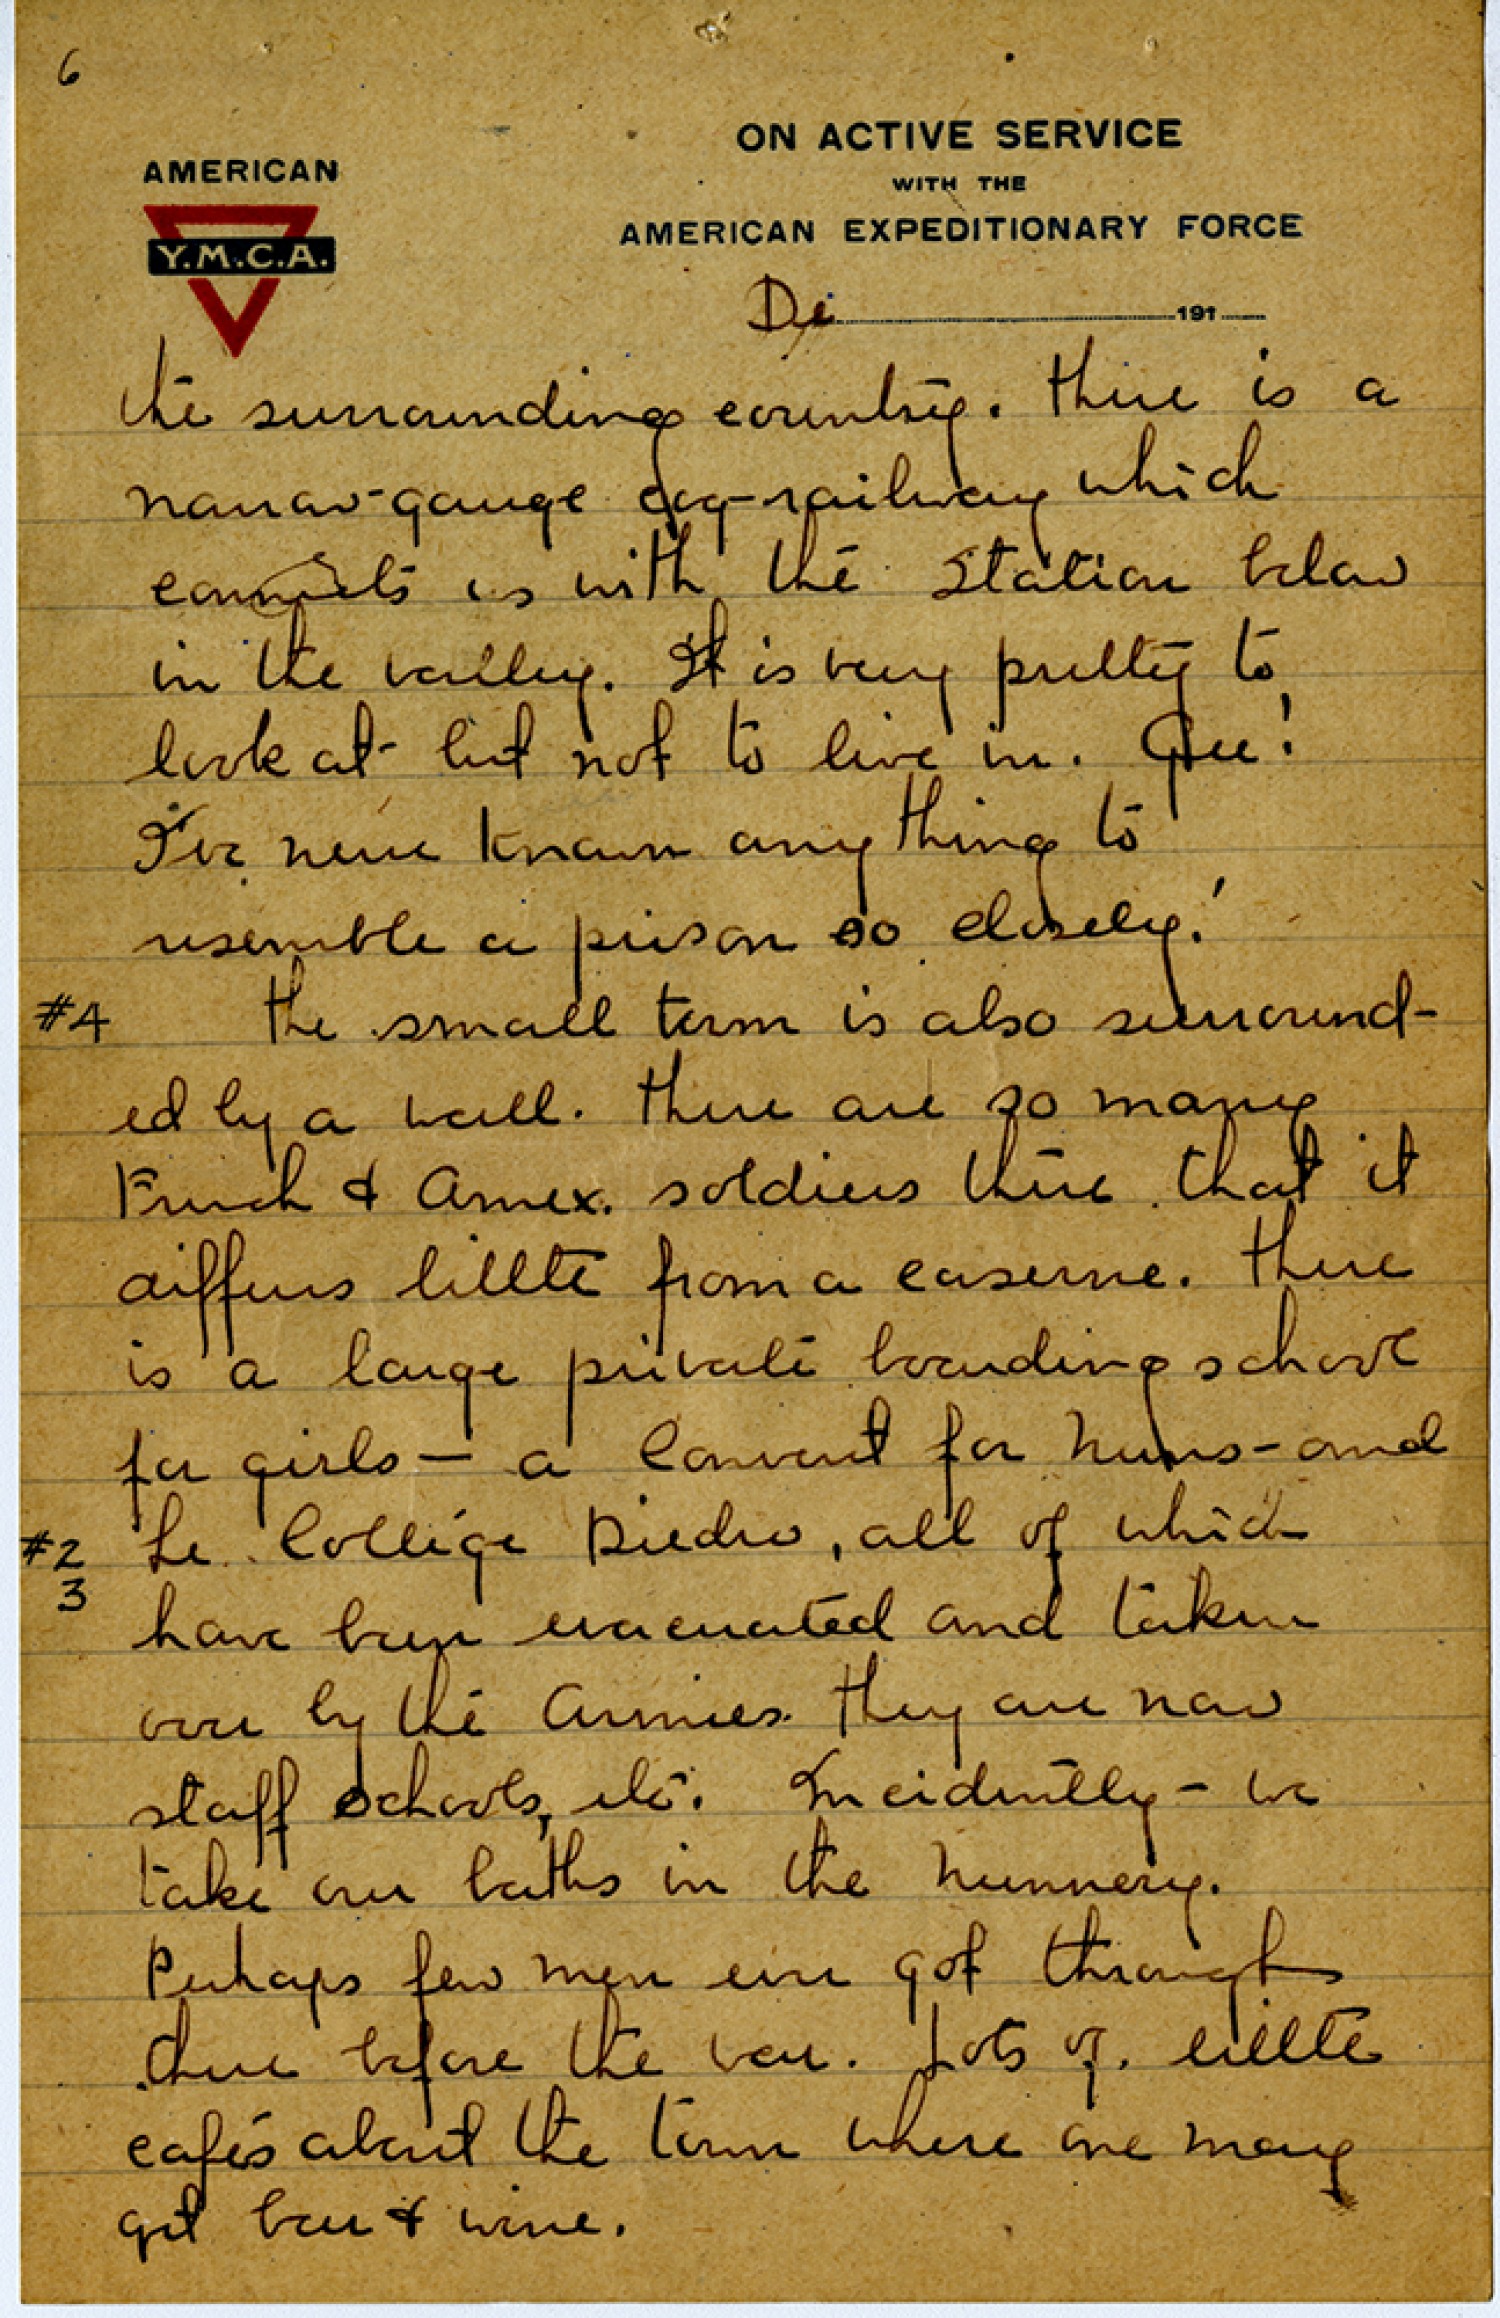 6
ON ACTIVE SERVICE
WITH THE
AMERICAN EXPEDITIONARY FORCE
AMERICAN
Y.M.C.A.
De 191
the surrounding country. There is a
narrow-gauge cog-railway which
connects us with the station below
in the valley. It is very pretty to
look at but not to live in. Gee!
I've never known anything to
resemble a prison so closely!
#4 The small town is also surround-
ed by a wall. There are so many
French & Amex. soldiers there that it
differs little from a caserne. There
is a large private boarding school
for girls — a Convent for Nuns - and
#2 Le Collége Diedro, all of which
3
have been evacuated and taken
over by the Armies. They are now
staff schools, etc. Incidently - we
take our baths in the Nunnery.
Perhaps few men ever got through
there before the war. Lots of little
cafés about the town where one may
get beer & wine.